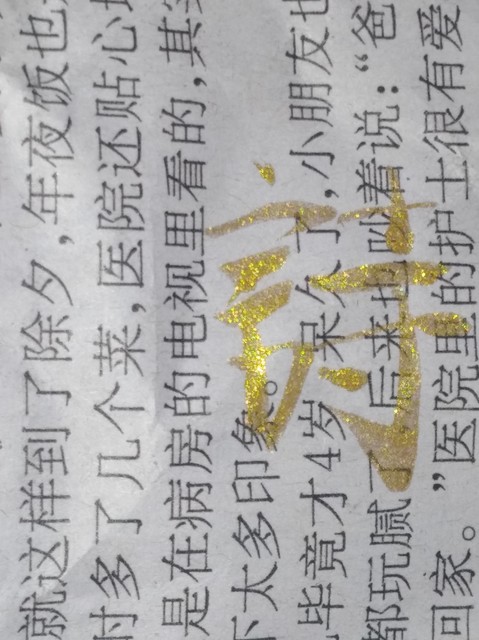 就这样到了除夕,年夜饭也
时多了几个菜,医院还贴心地
是在病房的电视里看的,其实
下太多印象。
毕竟才4岁 呆久了,小朋友也
都玩腻了,后来也吵着说:“爸
回家。”医院里的护士很有爱